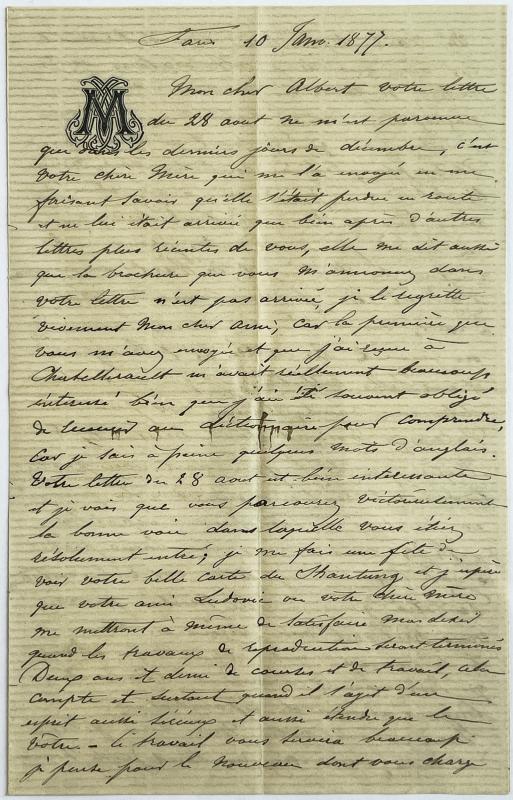 Paris 10 Janv. 1877.
M
Mon cher Albert votre lettre
du 28 aout ne m'est parvenue
que dans les derniers jours de décembre, c'est
votre chère Mère qui me l'a envoyée en me
faisant savoir qu'elle s'était perdue en route
et ne lui était arrivée que bien après d'autres
lettres plus récentes de vous, elle me dit aussi
que la brochure que vous m'annoncez dans
votre lettre n'est pas arrivée, je le regrette
vivement mon cher ami, car la première que
vous m'avez envoyée et que j'ai reçue à
Chatellerault m'avait réellement beaucoup
intéressé bien que j'aie été souvent obligé
de recourir au dictionnaire pour comprendre,
car je sais à peine quelques mots d'anglais.
Votre lettre du 28 aout est bien intéressante
et je vois que vous parcourez victorieusement
la bonne voie dans laquelle vous étiez
résolument entré; je me fais une fête de
voir votre belle carte du Shantung et j'espère
que votre ami Ludovic ou votre chère mère
me mettront à même de satisfaire mon désir
quand les travaux de reproduction seront terminés
Deux ans et demi de courses et de travail, cela
compte et surtout quand il s'agit d'un
esprit aussi sérieux et aussi étendu que le
vôtre - Ce travail vous servira beaucoup
je pense pour le nouveau dont vous charge